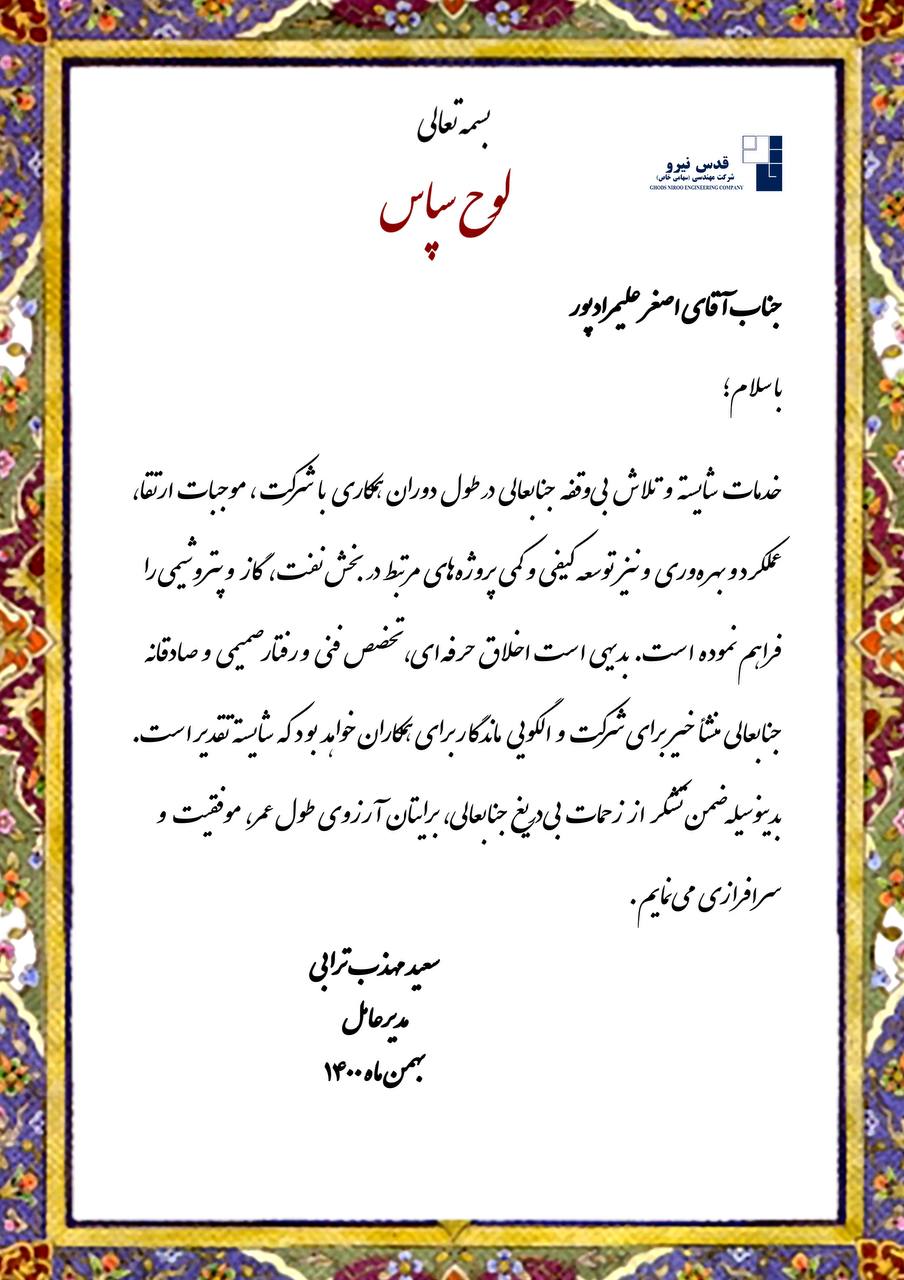 بسمه تعالی
قدس نیرو
شرکت مهندسی (سهامی خاص)
GHODS NIROO ENGINEERING COMPANY
لوح سپاس
جناب آقای اصغر علیمرادپور
با سلام؛
خدمات شایسته و تلاش بی‌وقفه جنابعالی در طول دوران همکاری با شرکت، موجبات ارتقاء
عملکرد و بهره‌وری و نیز توسعه کیفی و کمی پروژه‌های مرتبط در بخش نفت، گاز و پتروشیمی را
فراهم نموده است. بدیهی است اخلاق حرفه‌ای، تخصص فنی و رفتار صمیمی و صادقانه
جنابعالی منشأ خیر برای شرکت و الگویی ماندگار برای همکاران خواهد بود که شایسته تقدیر است.
بدینوسیله ضمن تشکر از زحمات بی‌دریغ جنابعالی، برایتان آرزوی طول عمر، موفقیت و
سرافرازی می‌نمایم.
سعید مهذب ترابی
مدیرعامل
بهمن ماه ۱۴۰۰